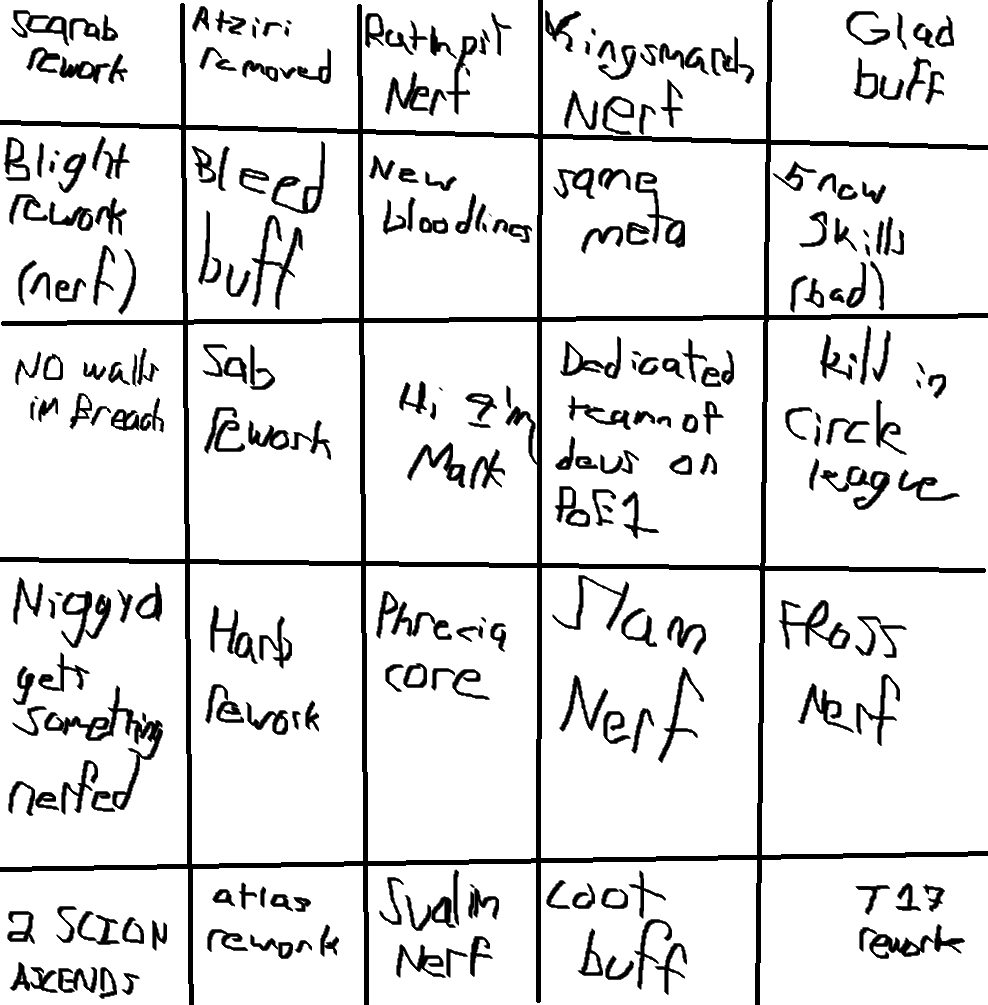 scarab
rework
Atziri
removed
Ruthpit
Nerf
Kingsmarch
Nerf
Glad
buff
Blight
rework
(nerf)
Bleed
buff
New
bloodlines
same
meta
5 new
skills
(bad)
NO walls
in Breach
Sab
rework
Hi I'm
Mark
Dedicated
team of
devs on
PoE1
kill in
circle
league
Niggyd
gets
something
nerfed
Harb
rework
Phrecia
core
Slam
Nerf
FRoSS
Nerf
2 SCION
ASCENDS
atlas
rework
Svalin
Nerf
Loot
buff
T17
rework